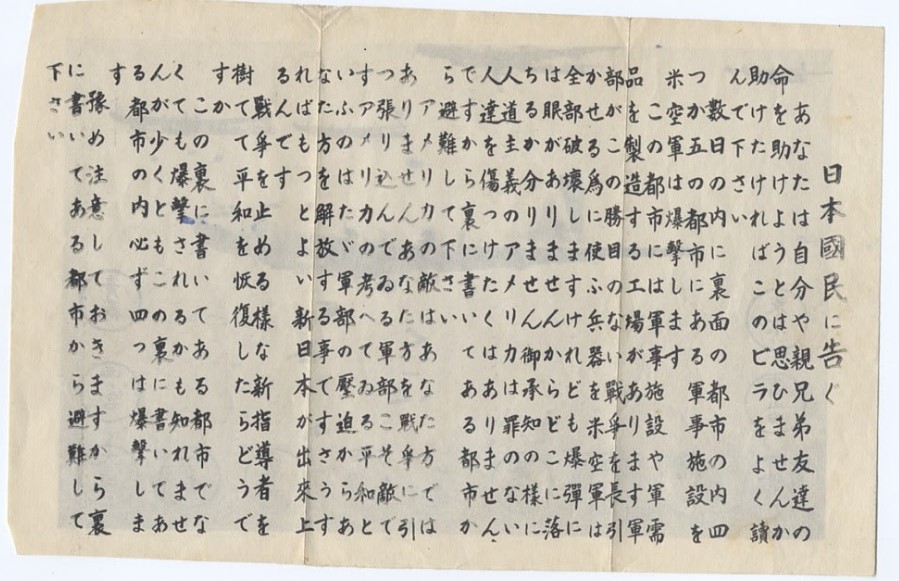 日本國民に告ぐ
あなたは自分や親兄弟友達の
命を助けようとは思ひませんか
助けたければこのビラをよく讀
んで下さい
数日の内に裏面の都市の内四
つか五つの都市にある軍事施設を
米空軍は爆撃します
この都市には軍事施設や軍需
品を製造する工場があります軍
部がこの勝目のない戰爭を長引
かせる為に使ふ兵器を米空軍は
全部破壊しますけれども爆彈に
は眼がありませんからどこに落
ちるか分りません御承知の様に
人道主義のアメリカは罪のない
人達を傷つけたくはありません
ですから裏に書いてある都市か
ら避難して下さい
アメリカの敵はあなた方では
ありませんあなた方を戰爭に引
つ張り込んでゐる軍部こそ敵で
すアメリカの考へてゐる平和と
いふのはたゞ軍部の壓迫からあ
なた方を解放する事ですさうす
ればもつとよい新日本が出來上
るんです
戰爭を止める様な新指導者を
樹てて平和を恢復したらどうで
すか
この裏に書いてある都市でな
くても爆撃されるかも知れませ
んが少くともこの裏に書いてあ
る都市の内必ず四つは爆撃しま
す
豫め注意しておきますから裏
に書いてある都市から避難して
下さい